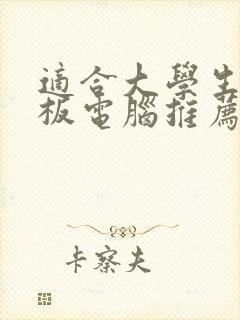 適合大學生
板電腦推薦
卡察夫